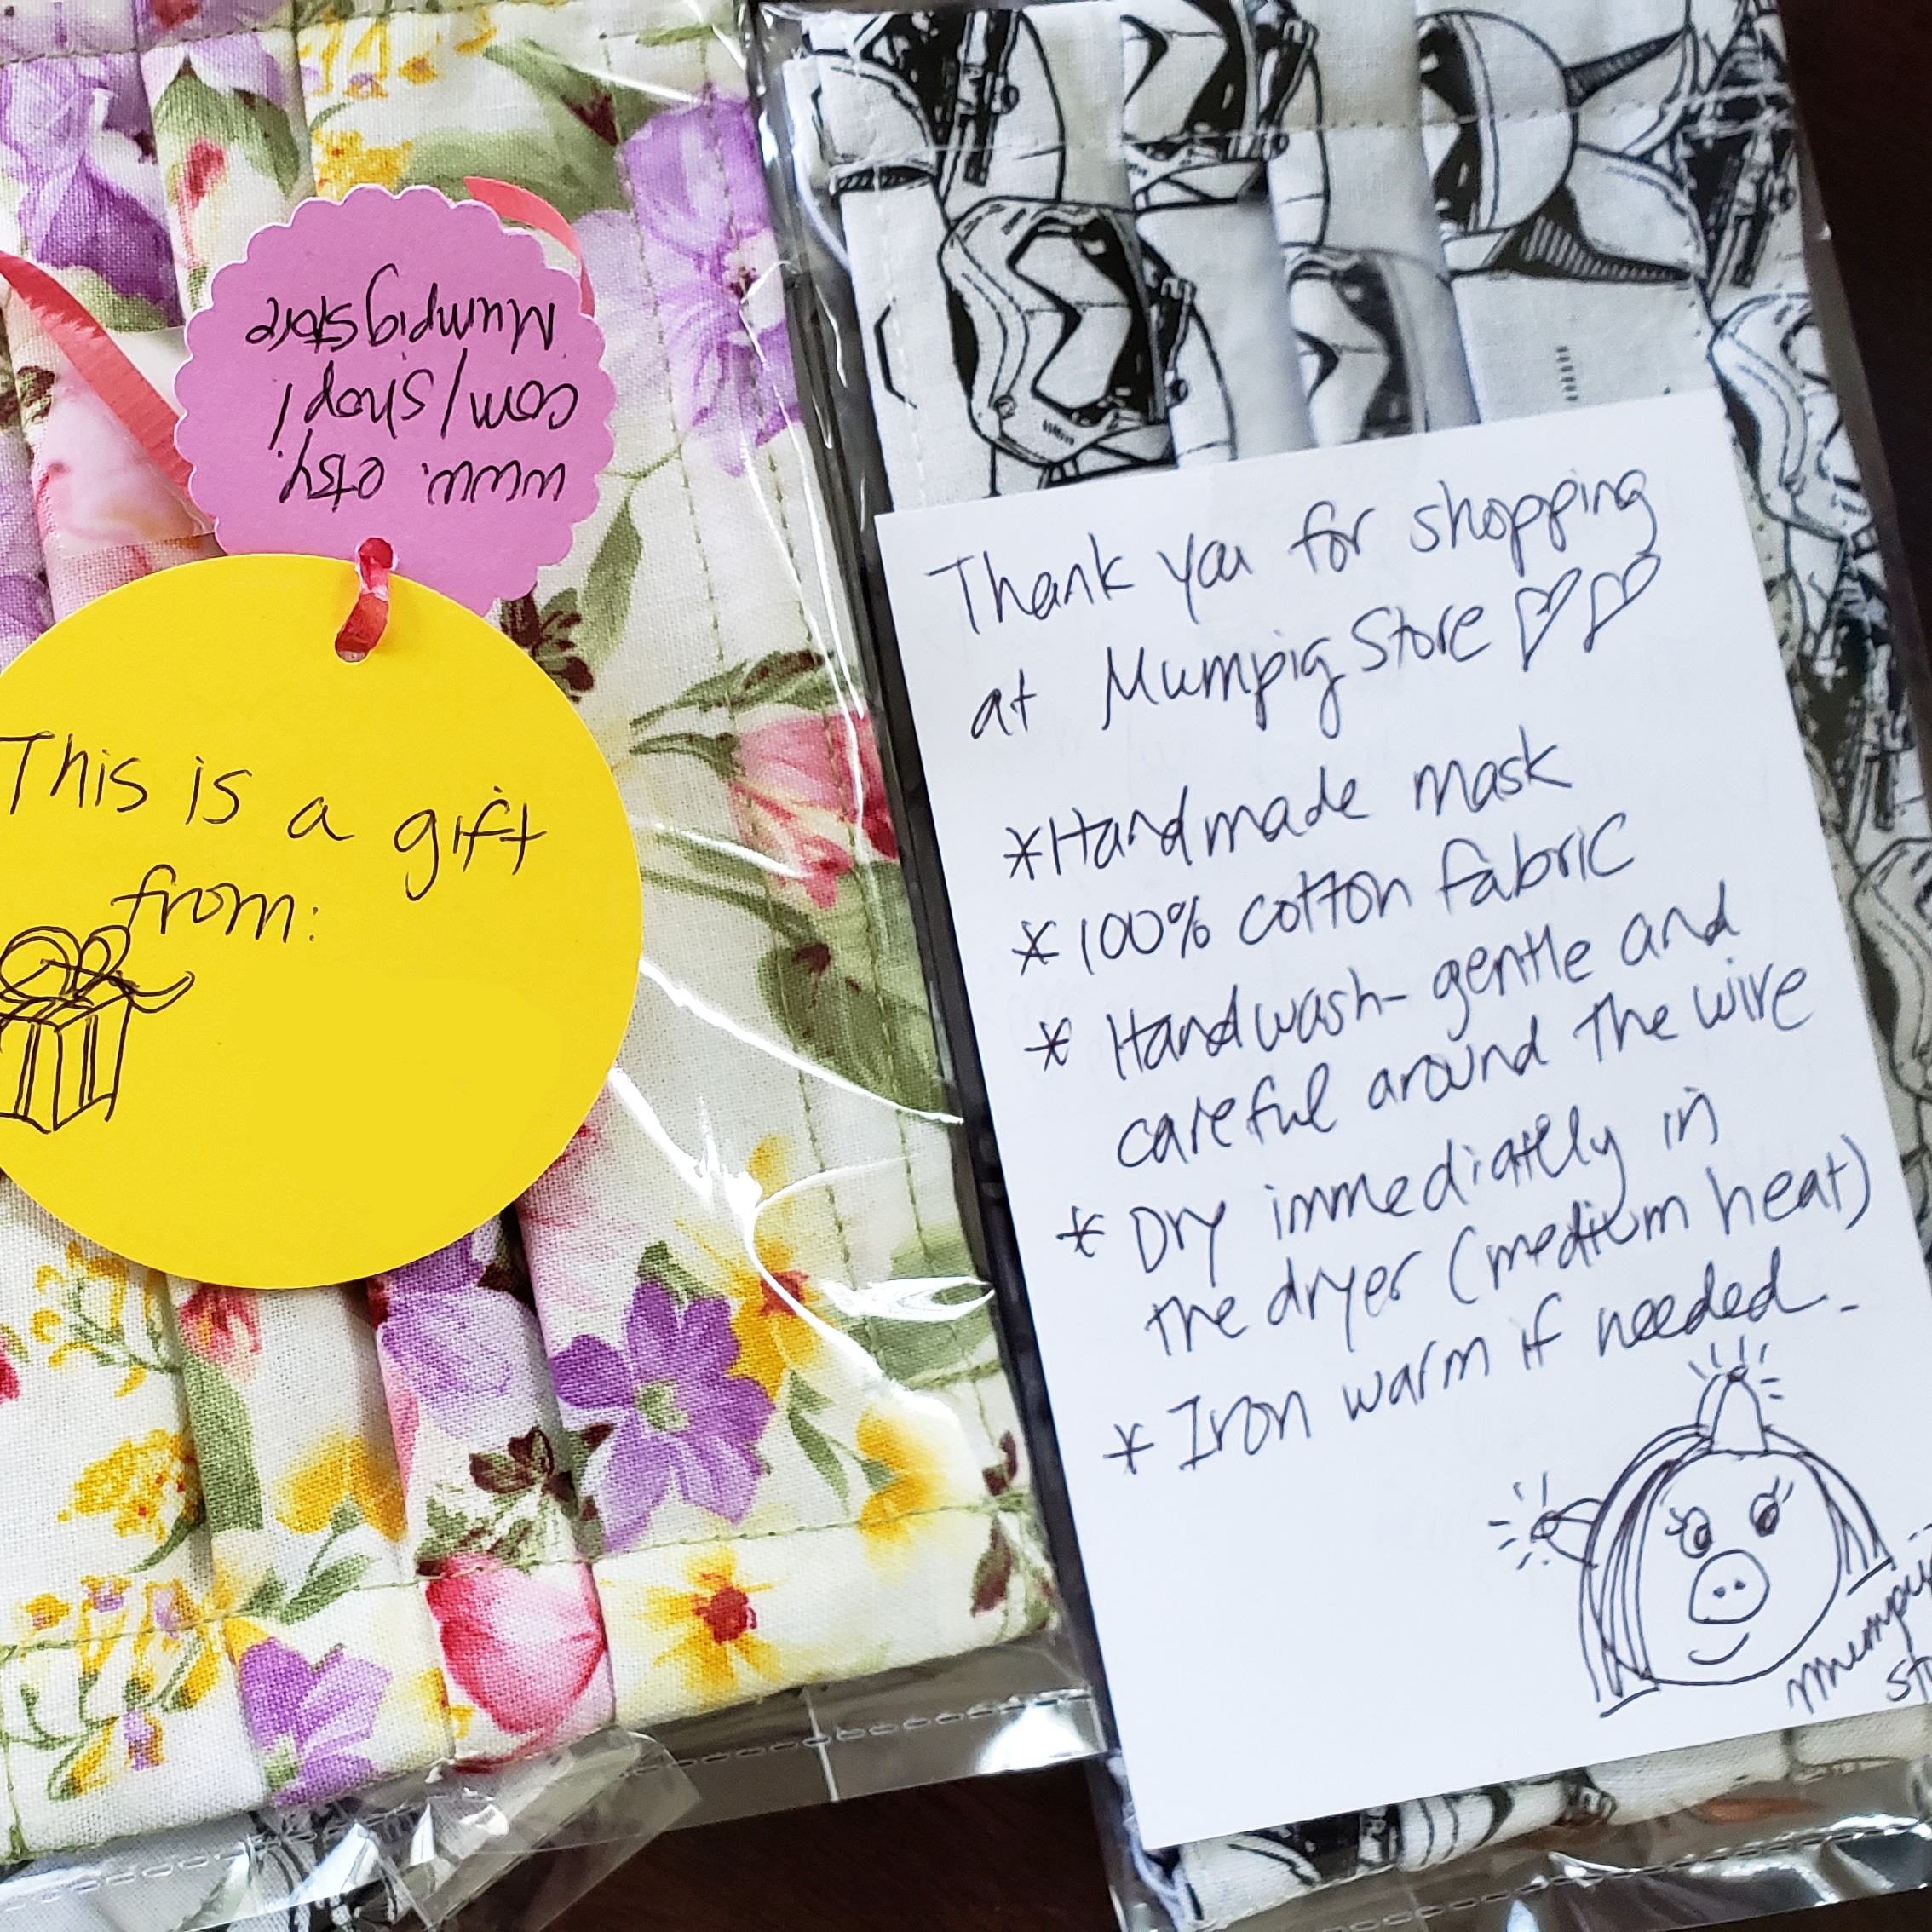 www.etsy.
com/shop/
Mumpigstore
This is a gift
from:
Thank you for shopping
at Mumpig Store ♡♡
*Handmade mask
*100% cotton fabric
* Handwash- gentle and
careful around the wire
* Dry immediately in
the dryer (medium heat)
* Iron warm if needed.